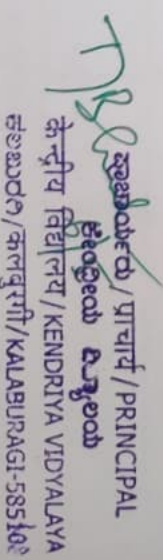 ಪ್ರಾಚಾರ್ಯರು / प्राचार्य / PRINCIPAL
ಕೇಂದ್ರೀಯ ವಿದ್ಯಾಲಯ
केन्द्रीय विद्यालय / KENDRIYA VIDYALAYA
ಕಲಬುರಗಿ / कलबुरगी / KALABURAGI-585102